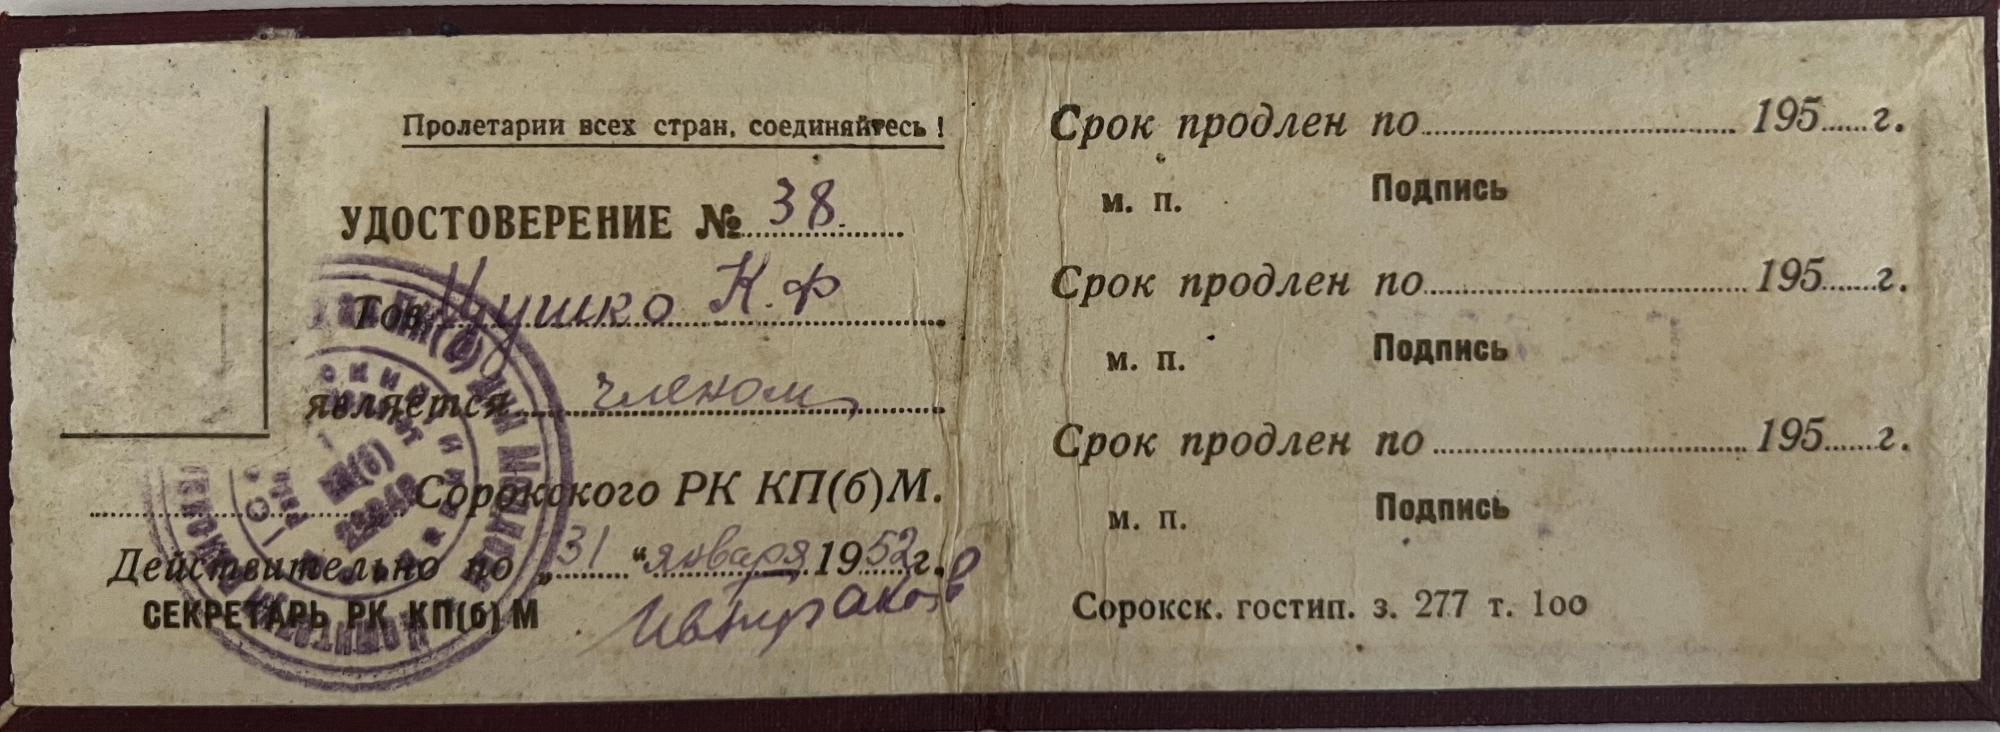 Пролетарии всех стран, соединяйтесь!
УДОСТОВЕРЕНИЕ № 38.
Тов. Цушко К.Ф
является членом
Сорокского РК КП(б)М.
Действительно по „31 “ января 1952 г.
СЕКРЕТАРЬ РК КП(б)М
КП(б)
Срок продлен по 195 г.
м. п. Подпись
Срок продлен по 195 г.
м. п. Подпись
Срок продлен по 195 г.
м. п. Подпись
Сорокск. гостип. з. 277 т. 1оо